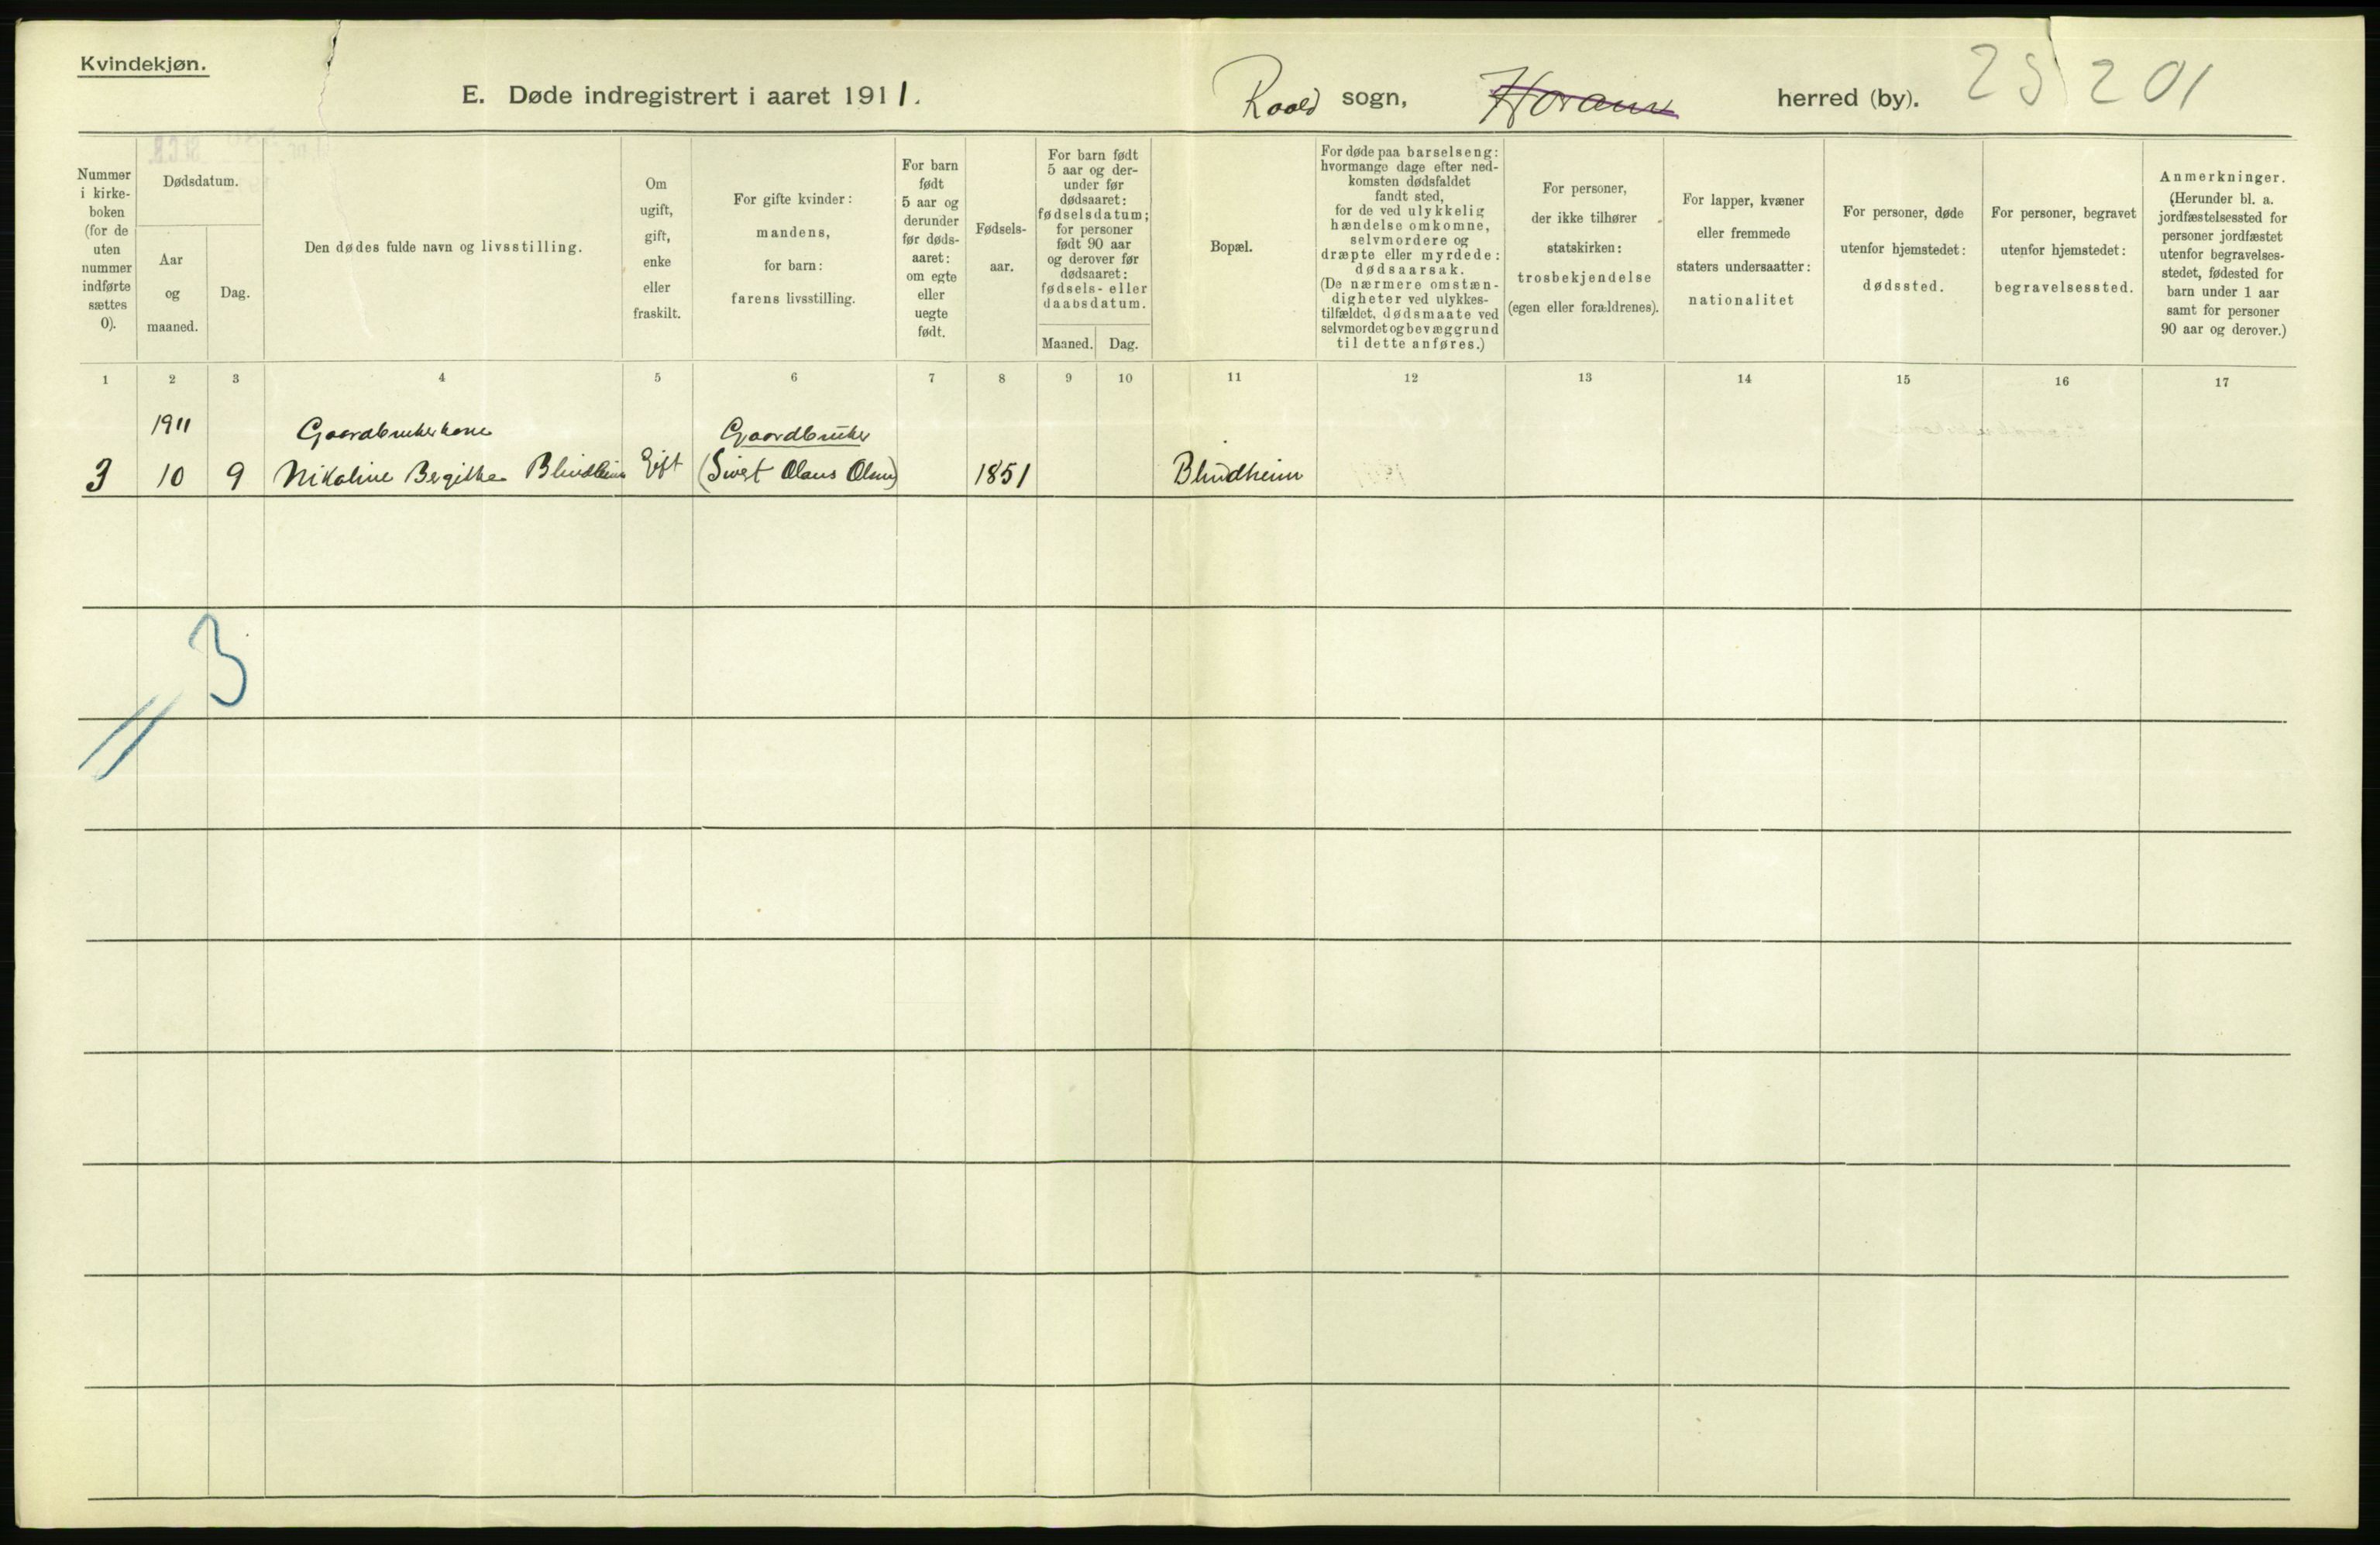 Kvindekjøn.
E. Døde indregistrert i aaret 1911. Roald sogn, herred (by). 25 201
Nummer
i kirke-
boken
(for de
uten
nummer
indførte
sættes
0).
Dødsdatum.
Aar
og
maaned.
Dag.
Den dødes fulde navn og livsstilling.
Om
ugift,
gift,
enke
eller
fraskilt.
For gifte kvinder:
mandens,
for barn:
farens livsstilling.
For barn
født
5 aar og
derunder
før døds-
aaret:
om egte
eller
uegte
født.
Fødsels-
aar.
For barn født
5 aar og der-
under før
dødsaaret:
fødselsdatum;
for personer
født 90 aar
og derover før
dødsaaret:
fødsels- eller
daabsdatum.
Maaned.
Dag.
Bopæl.
For døde paa barselseng:
hvormange dage efter ned-
komsten dødsfaldet
fandt sted,
for de ved ulykkelig
hændelse omkomne,
selvmordere og
dræpte eller myrdede:
dødsaarsak.
(De nærmere omstæn-
digheter ved ulykkes-
tilfældet, dødsmaate ved
selvmordet og bevæggrund
til dette anføres.)
For personer,
der ikke tilhører
statskirken:
trosbekjendelse
(egen eller forældrenes).
For lapper, kvæner
eller fremmede
staters undersaatter:
nationalitet
For personer, døde
utenfor hjemstedet:
dødssted.
For personer, begravet
utenfor hjemstedet:
begravelsessted.
Anmerkninger.
(Herunder bl. a.
jordfæstelsessted for
personer jordfæstet
utenfor begravelses-
stedet, fødested for
barn under 1 aar
samt for personer
90 aar og derover.)
1 2 3 4 5 6 7 8 9 10 11 12 13 14 15 16 17
1911 Gaardbrukerkone Gaardbruker
3 10 9 Nikoline Bergithe Blindheim Gift (Sivert Olaus Olsen) 1851 Blindheim
3